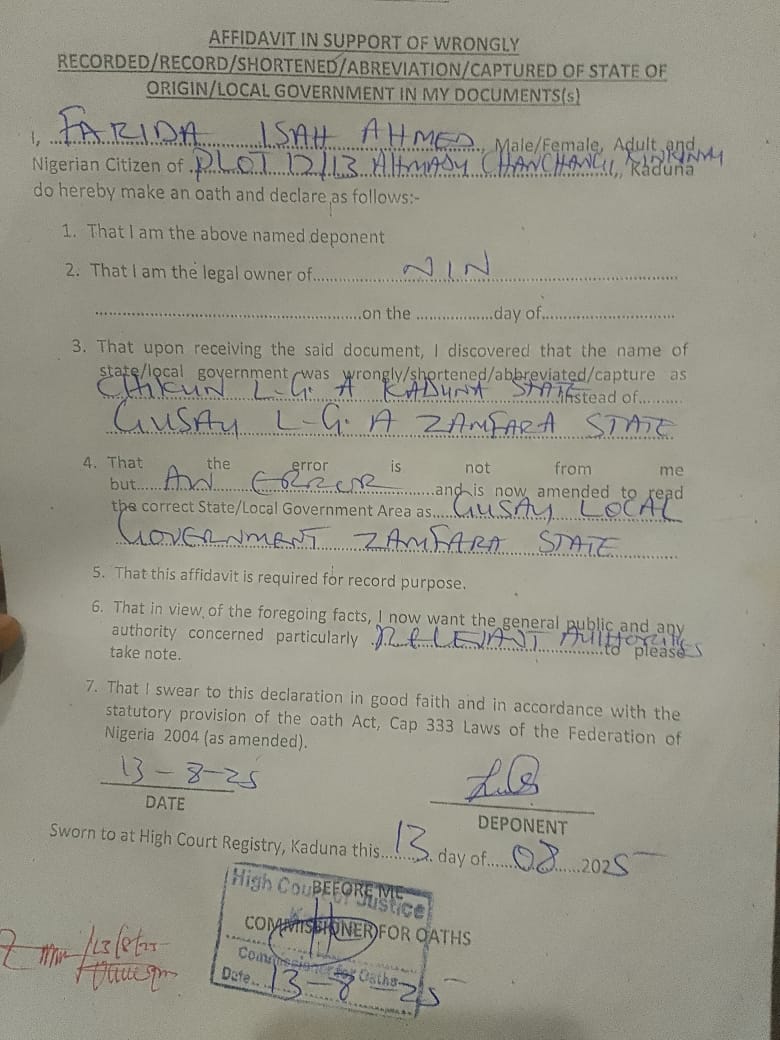 AFFIDAVIT IN SUPPORT OF WRONGLY
RECORDED/RECORD/SHORTENED/ABREVIATION/CAPTURED OF STATE OF
ORIGIN/LOCAL GOVERNMENT IN MY DOCUMENTS(s)
I, FARIDA ISAH AHMED, Male/Female, Adult and
Nigerian Citizen of PLOT 12/13 AHMADU CHANCHANGI, Kaduna
do hereby make an oath and declare as follows:-
1. That I am the above named deponent
2. That I am the legal owner of NIN
on the day of
3. That upon receiving the said document, I discovered that the name of
state/local government was wrongly/shortened/abbreviated/capture as
CHIKUN L-G. A KADUNA STATE instead of
GUSAU L-G. A ZAMFARA STATE
4. That the error is not from me
but AN ERROR and is now amended to read
the correct State/Local Government Area as GUSAU LOCAL
GOVERNMENT ZAMFARA STATE
5. That this affidavit is required for record purpose.
6. That in view of the foregoing facts, I now want the general public and any
authority concerned particularly RELEVANT AUTHORITIES to please
take note.
7. That I swear to this declaration in good faith and in accordance with the
statutory provision of the oath Act, Cap 333 Laws of the Federation of
Nigeria 2004 (as amended).
13-8-25
DATE
DEPONENT
Sworn to at High Court Registry, Kaduna this 13 day of 08 2025
High Court of Justice
BEFORE ME
COMMISSIONER FOR OATHS
Commissioner for Oaths
Date 13-8-25